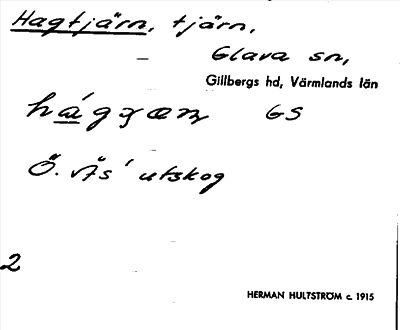 Hagtjärn, tjärn,
Glava sn,
Gillbergs hd, Värmlands län
GS
Ö.
utskog
2
HERMAN HULTSTRÖM c. 1915